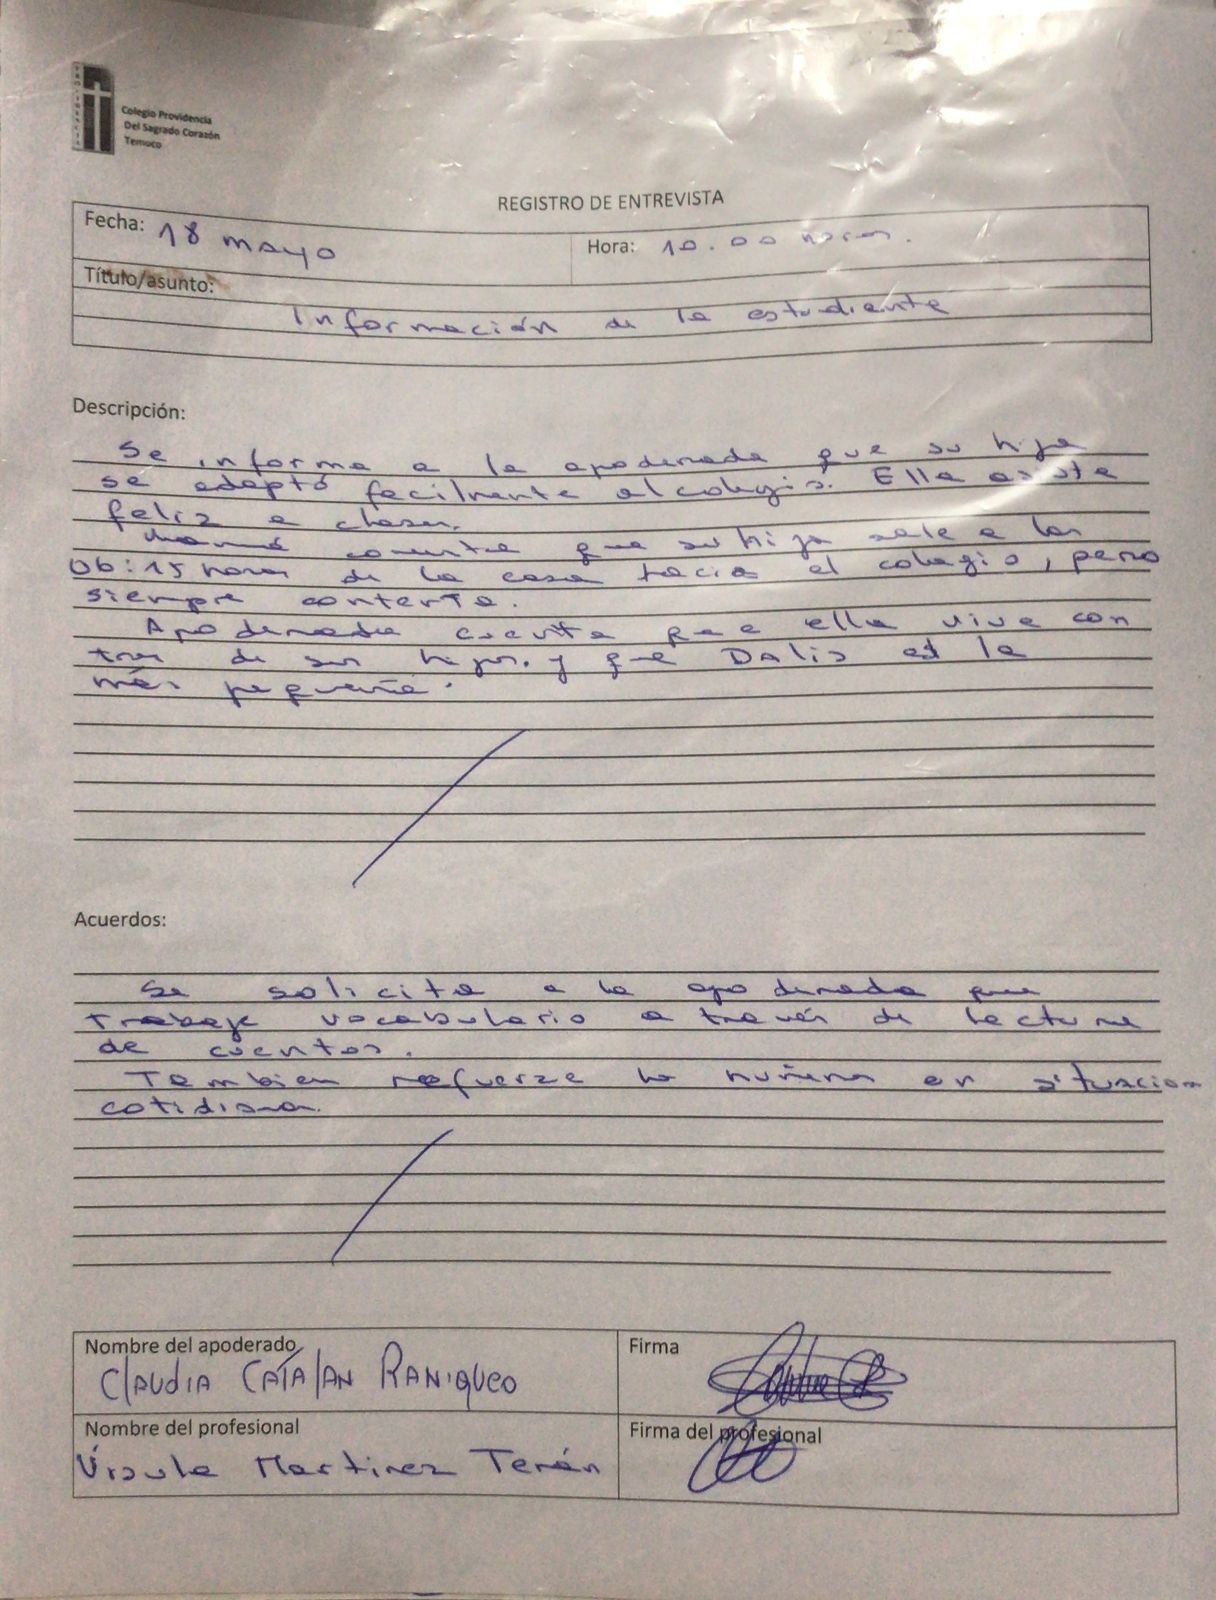 PROVIDENCIA
Colegio Providencia
Del Sagrado Corazón
Temuco
REGISTRO DE ENTREVISTA
Fecha: 18 mayo
Hora: 10.00 horas.
Título/asunto:
Información de la estudiante
Descripción:
Se informa a la apoderada que su hija
se adaptó facilmente al colegio. Ella asiste
feliz a clases.
Mamá comenta que su hija sale a las
06:15 horas de la casa hacia el colegio, pero
siempre contenta.
Apoderada cuenta que ella vive con
tres de sus hijos. y que Dalis es la
más pequeña.
Acuerdos:
Se solicita a la apoderada que
trabaje vocabulario a través de lectura
de cuentos.
Tambien refuerze los números en situaciones
cotidianas.
Nombre del apoderado
Claudia Catalan Raniqueo
Firma
Nombre del profesional
Úrsula Martinez Terán
Firma del profesional